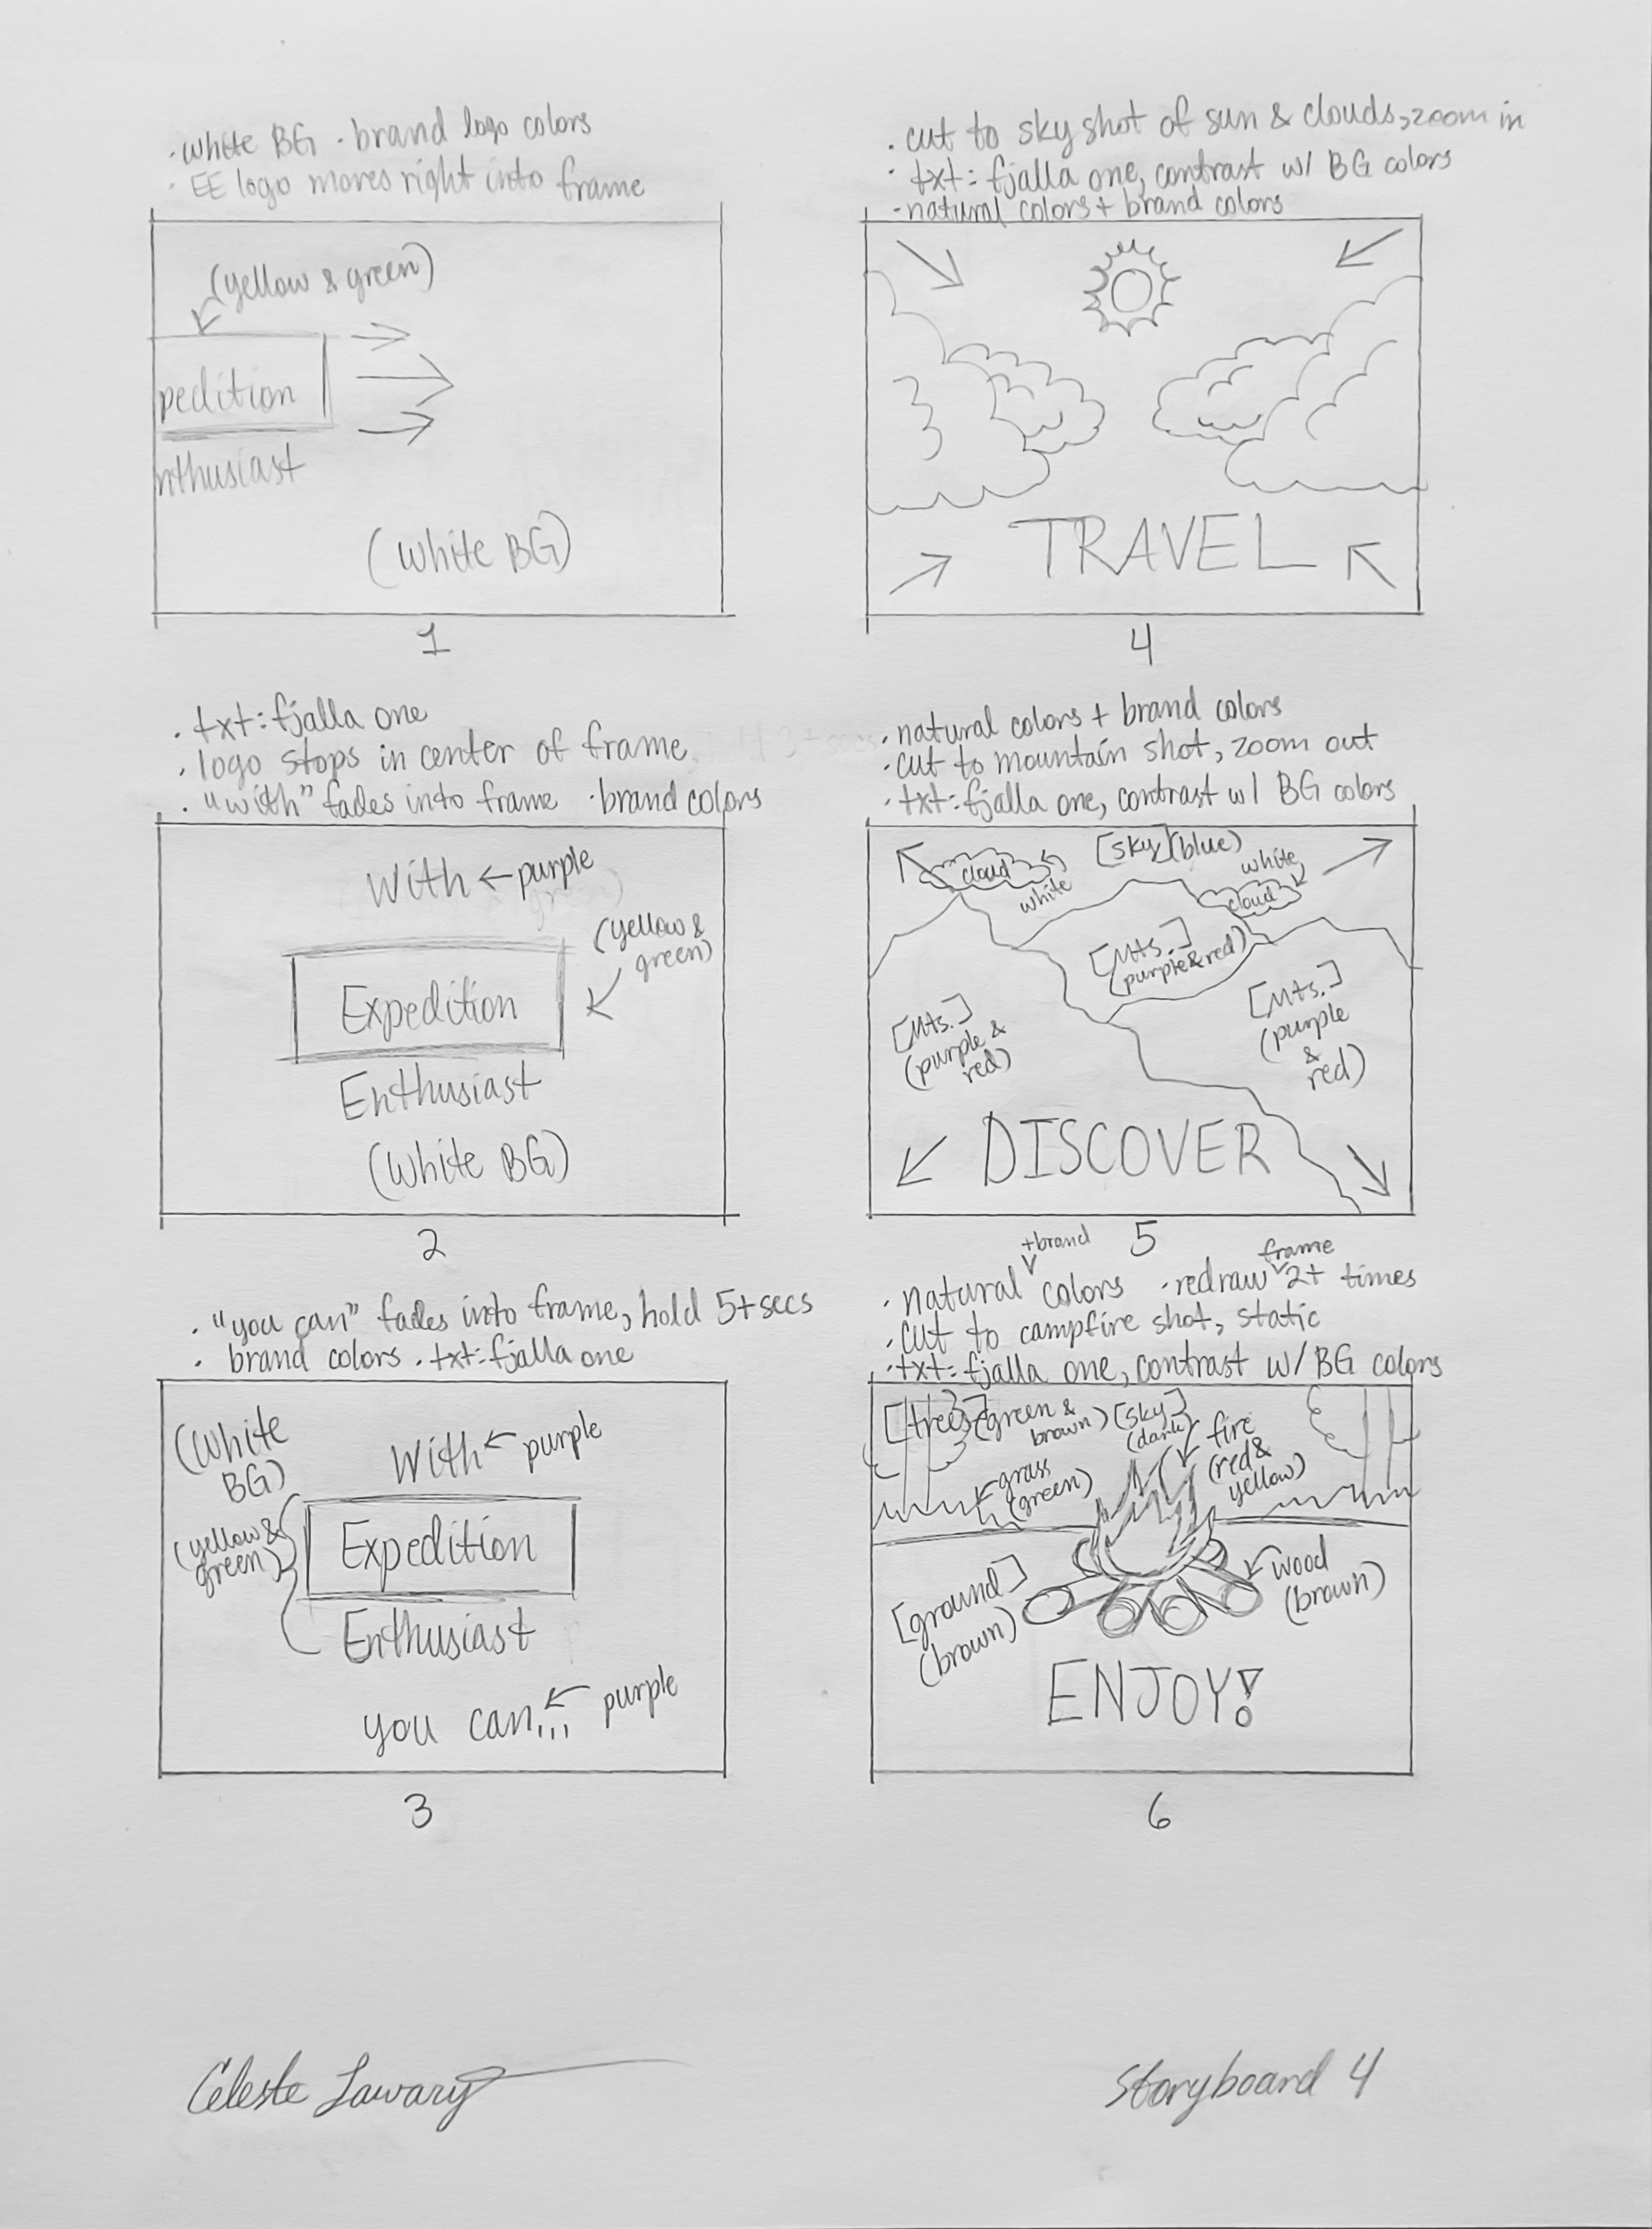 · white BG · brand logo colors
· EE logo moves right into frame
(yellow & green)
pedition
nthusiast
(White BG)
1
· txt: fjalla one
· logo stops in center of frame
· "with" fades into frame · brand colors
With ← purple
(yellow &
green)
Expedition
Enthusiast
(White BG)
2
· "you can" fades into frame, hold 5+ secs
· brand colors · txt: fjalla one
(White
BG)
With ← purple
(yellow &
green)
Expedition
Enthusiast
you can... ← purple
3
· cut to sky shot of sun & clouds, zoom in
· txt: fjalla one, contrast w/ BG colors
· natural colors + brand colors
TRAVEL
4
· natural colors + brand colors
· cut to mountain shot, zoom out
· txt: fjalla one, contrast w/ BG colors
[sky] (blue)
cloud
white
white
cloud
[Mts.]
(purple & red)
[Mts.]
(purple &
red)
[Mts.]
(purple
&
red)
DISCOVER
5
+brand
frame
· natural colors · redraw 2+ times
· cut to campfire shot, static
· txt: fjalla one, contrast w/ BG colors
[trees] (green &
brown)
[sky]
(dark)
fire
(red &
yellow)
grass
(green)
[ground]
(brown)
wood
(brown)
ENJOY!
6
Celeste Lawary
Storyboard 4